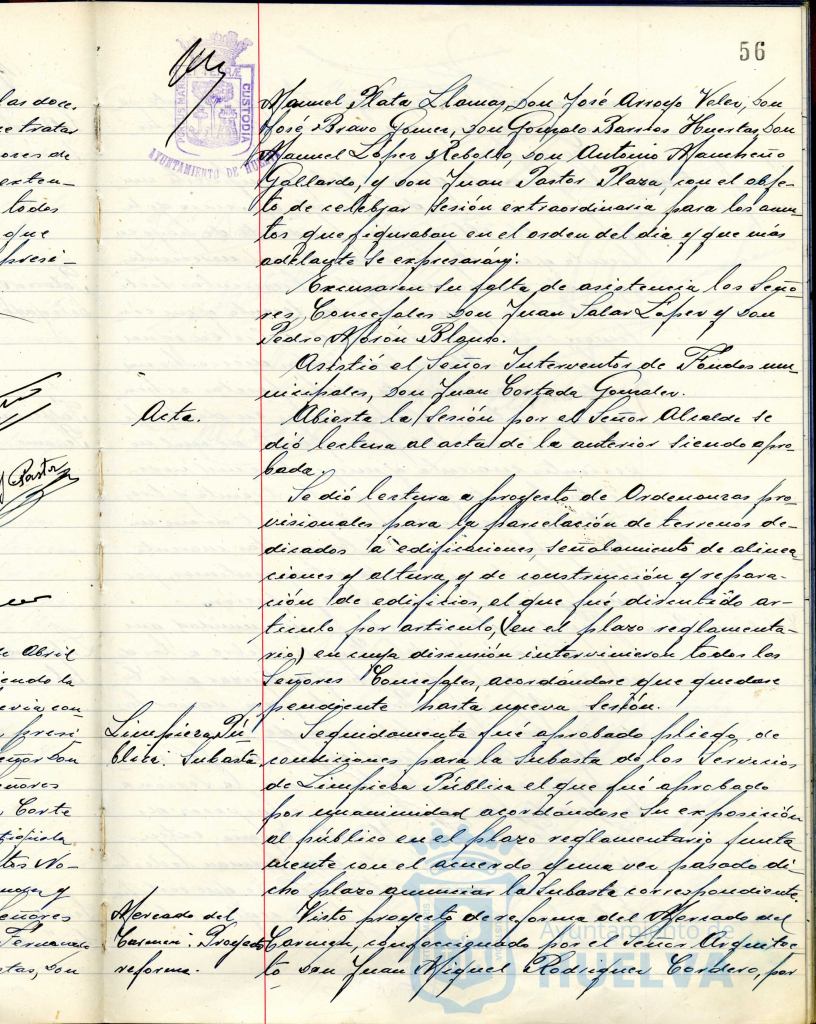 56
las doce,
e tratar
ores de
exten-
todos
que
presi-
PORTUS MARIS ET TERRAE CUSTODIA
AYUNTAMIENTO DE HUELVA
Manuel Plata Llamas, Don José Arroyo Velez, Don
José Bravo Gomez, Don Gonzalo Barrios Huertas, Don
Manuel López Rebollo, Don Antonio Mancheño
Gallardo, y Don Juan Pastor Plaza, con el obje-
to de celebrar sesión extraordinaria para los asun-
tos que figuraban en el orden del dia y que más
adelante se expresarán:
Excusaron su falta de asistencia los Seño-
res Concejales Don Juan Salar López y Don
Pedro Morón Blanco.
Asistió el Señor Interventor de Fondos mu-
nicipales, Don Juan Cortada Gonzalez.
Acta.
Abierta la Sesión por el Señor Alcalde se
dió lectura al acta de la anterior siendo apro-
bada.
Pastor
Se dió lectura a proyecto de Ordenanzas pro-
visionales para la parcelación de terrenos de-
dicados á edificaciones, señalamiento de alinea-
ciones y altura, y de construcción y repara-
ción de edificios, el que fué discutido ar-
ticulo por articulo, (en el plazo reglamenta-
rio) en cuya discusión intervinieron todos los
Señores Concejales, acordándose que quedase
pendiente hasta nueva Sesión.
de Abril
iendo la
evia con
presi
eñor Don
eñores
Corte
tos No-
y
eñores
Fernando
tas, Don
Limpieza Pú-
blica: Subasta
Seguidamente fué aprobado pliego de
condiciones para la subasta de los Servicios
de Limpieza Pública el que fué aprobado
por unanimidad acordándose su exposición
al público en el plazo reglamentario junta-
mente con el acuerdo y una vez pasado di-
cho plazo anunciar la subasta correspondiente.
Mercado del
Carmen: Proyecto
reforma.
Visto proyecto de reforma del Mercado del
Carmen, confeccionado por el Señor Arquitec-
to Don Juan Miguel Rodriguez Cordero, por
Ayuntamiento de
HUELVA